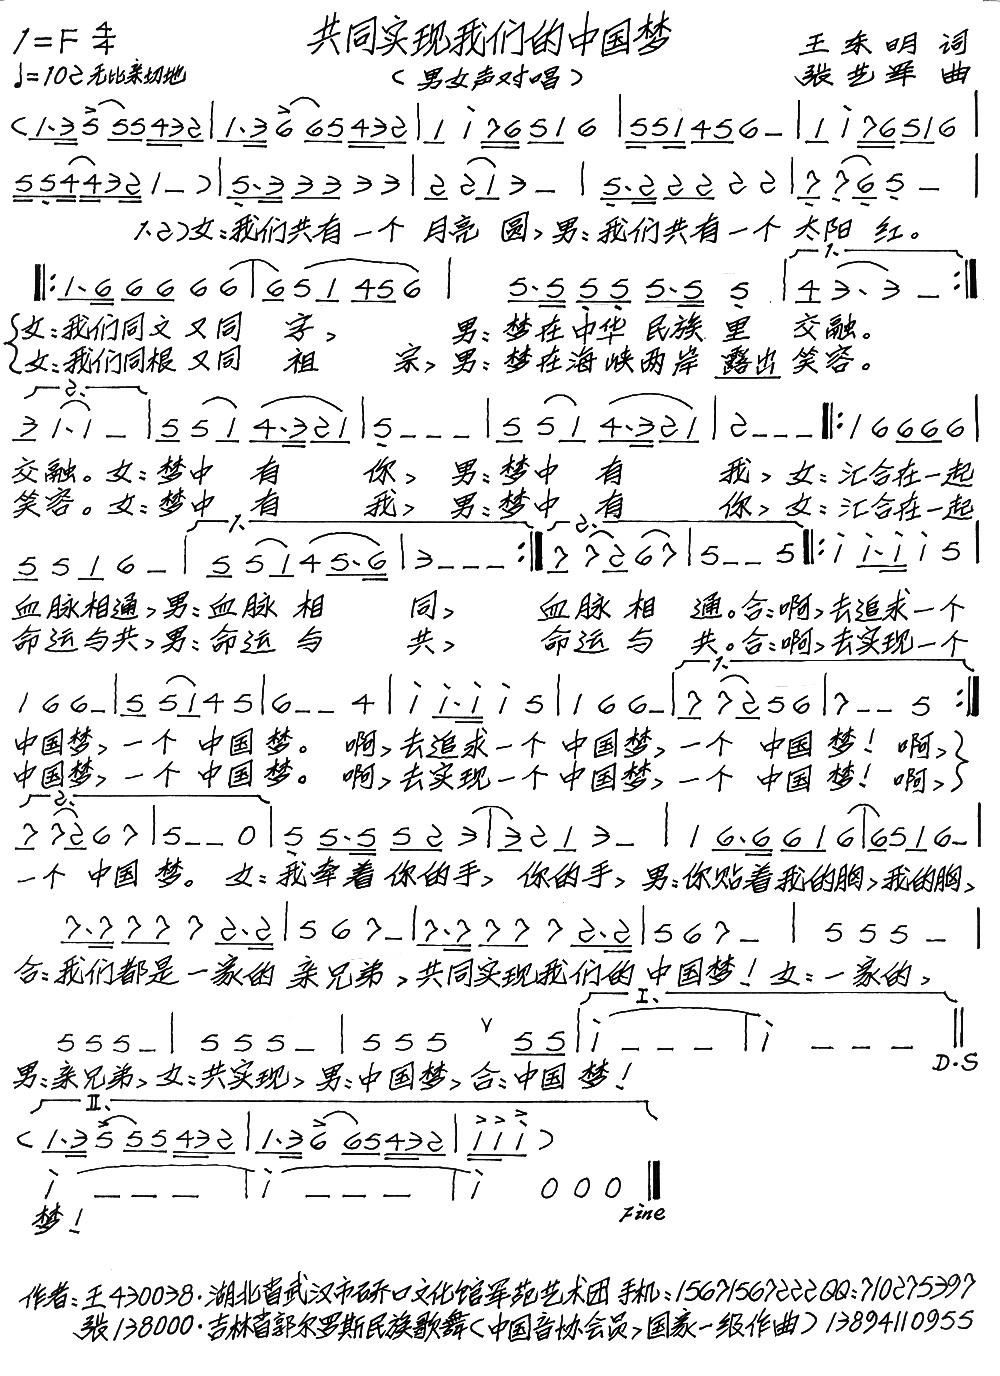 共同实现我们的中国梦
1=F 4/4
王东明 词
♩=102 无比亲切地
(男女声对唱)
张艺军 曲
(1·3 5 55432|1·3 6 65432|1 i 76516|551456-|1 i 76516|
554432 1-)|5·3 3 3 3 3|2 21 3-|5·2 2 2 2 2|7 76 5-|
1.2)女:我们共有一个 月亮 圆,男:我们共有一个 太阳 红。
1.
‖:1·6 6 6 6 6|651 456|5·5 5 5 5·5 5|4 3·3-:‖
女:我们同文又同 字, 男:梦在中华 民族 里 交融。
女:我们同根又同 祖 宗,男:梦在海峡两岸 露出 笑容。
2.
3 1·1-|5 51 4·321|5---|5 51 4·321|2---‖:1 6666|
交融。女:梦中 有 你, 男:梦中 有 我,女:汇合在一起
笑容。女:梦中 有 我, 男:梦中 有 你,女:汇合在一起
1. 2.
5 5 1 6-|5 51 45·6|3---:‖7 7267|5--5‖:i i·i i 5|
血脉相通,男:血脉 相 同, 血脉 相 通。合:啊,去追求一个
命运与共,男:命运 与 共, 命运 与 共。合:啊,去实现一个
1.
1 6 6-|5 5145|6--4|i i·i i 5|1 6 6-|7 7256|7--5:‖
中国梦,一个 中国 梦。 啊,去追求一个 中国梦,一个 中国 梦!啊,
中国梦,一个 中国 梦。 啊,去实现一个中国梦,一个 中国 梦!啊,
2.
7 7267|5--0|5 5·5 5 2 3|3 2 1 3-|1 6·6 6 1 6|6516-|
一个 中国 梦。 女:我牵着 你的手, 你的手,男:你贴着我的胸,我的胸,
7·7 7 7 7 2·2|5 6 7-|7·7 7 7 7 2·2|5 6 7-|5 5 5-|
合:我们都是一家的 亲兄弟,共同实现我们的 中国梦!女:一家的,
I.
5 5 5-|5 5 5-|5 5 5 ∨ 5 5|i---|i---‖
D·S
男:亲兄弟,女:共实现,男:中国梦,合:中国 梦!
II.
(1·3 5 55432|1·3 6 65432|i i i)
i---|i---|i 0 0 0‖
Fine
梦!
作者:王430038·湖北省武汉市硚口文化馆军苑艺术团 手机:15671567222QQ:710275397
张138000·吉林省郭尔罗斯民族歌舞(中国音协会员,国家一级作曲)13894110955